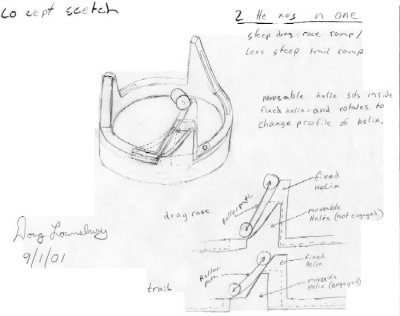 co cept scetch
2 He xes n one
steep drag-race ramp/
less steep trail ramp
moveable helix sits inside
fixed helix and rotates to
change profile of helix.
Doug Lounsbury
9/1/01
drag race
Roller path
fixed
helix
movable
Helix (not engaged)
trail
Roller
path
fixed
Helix
moveable
Helix (engaged)